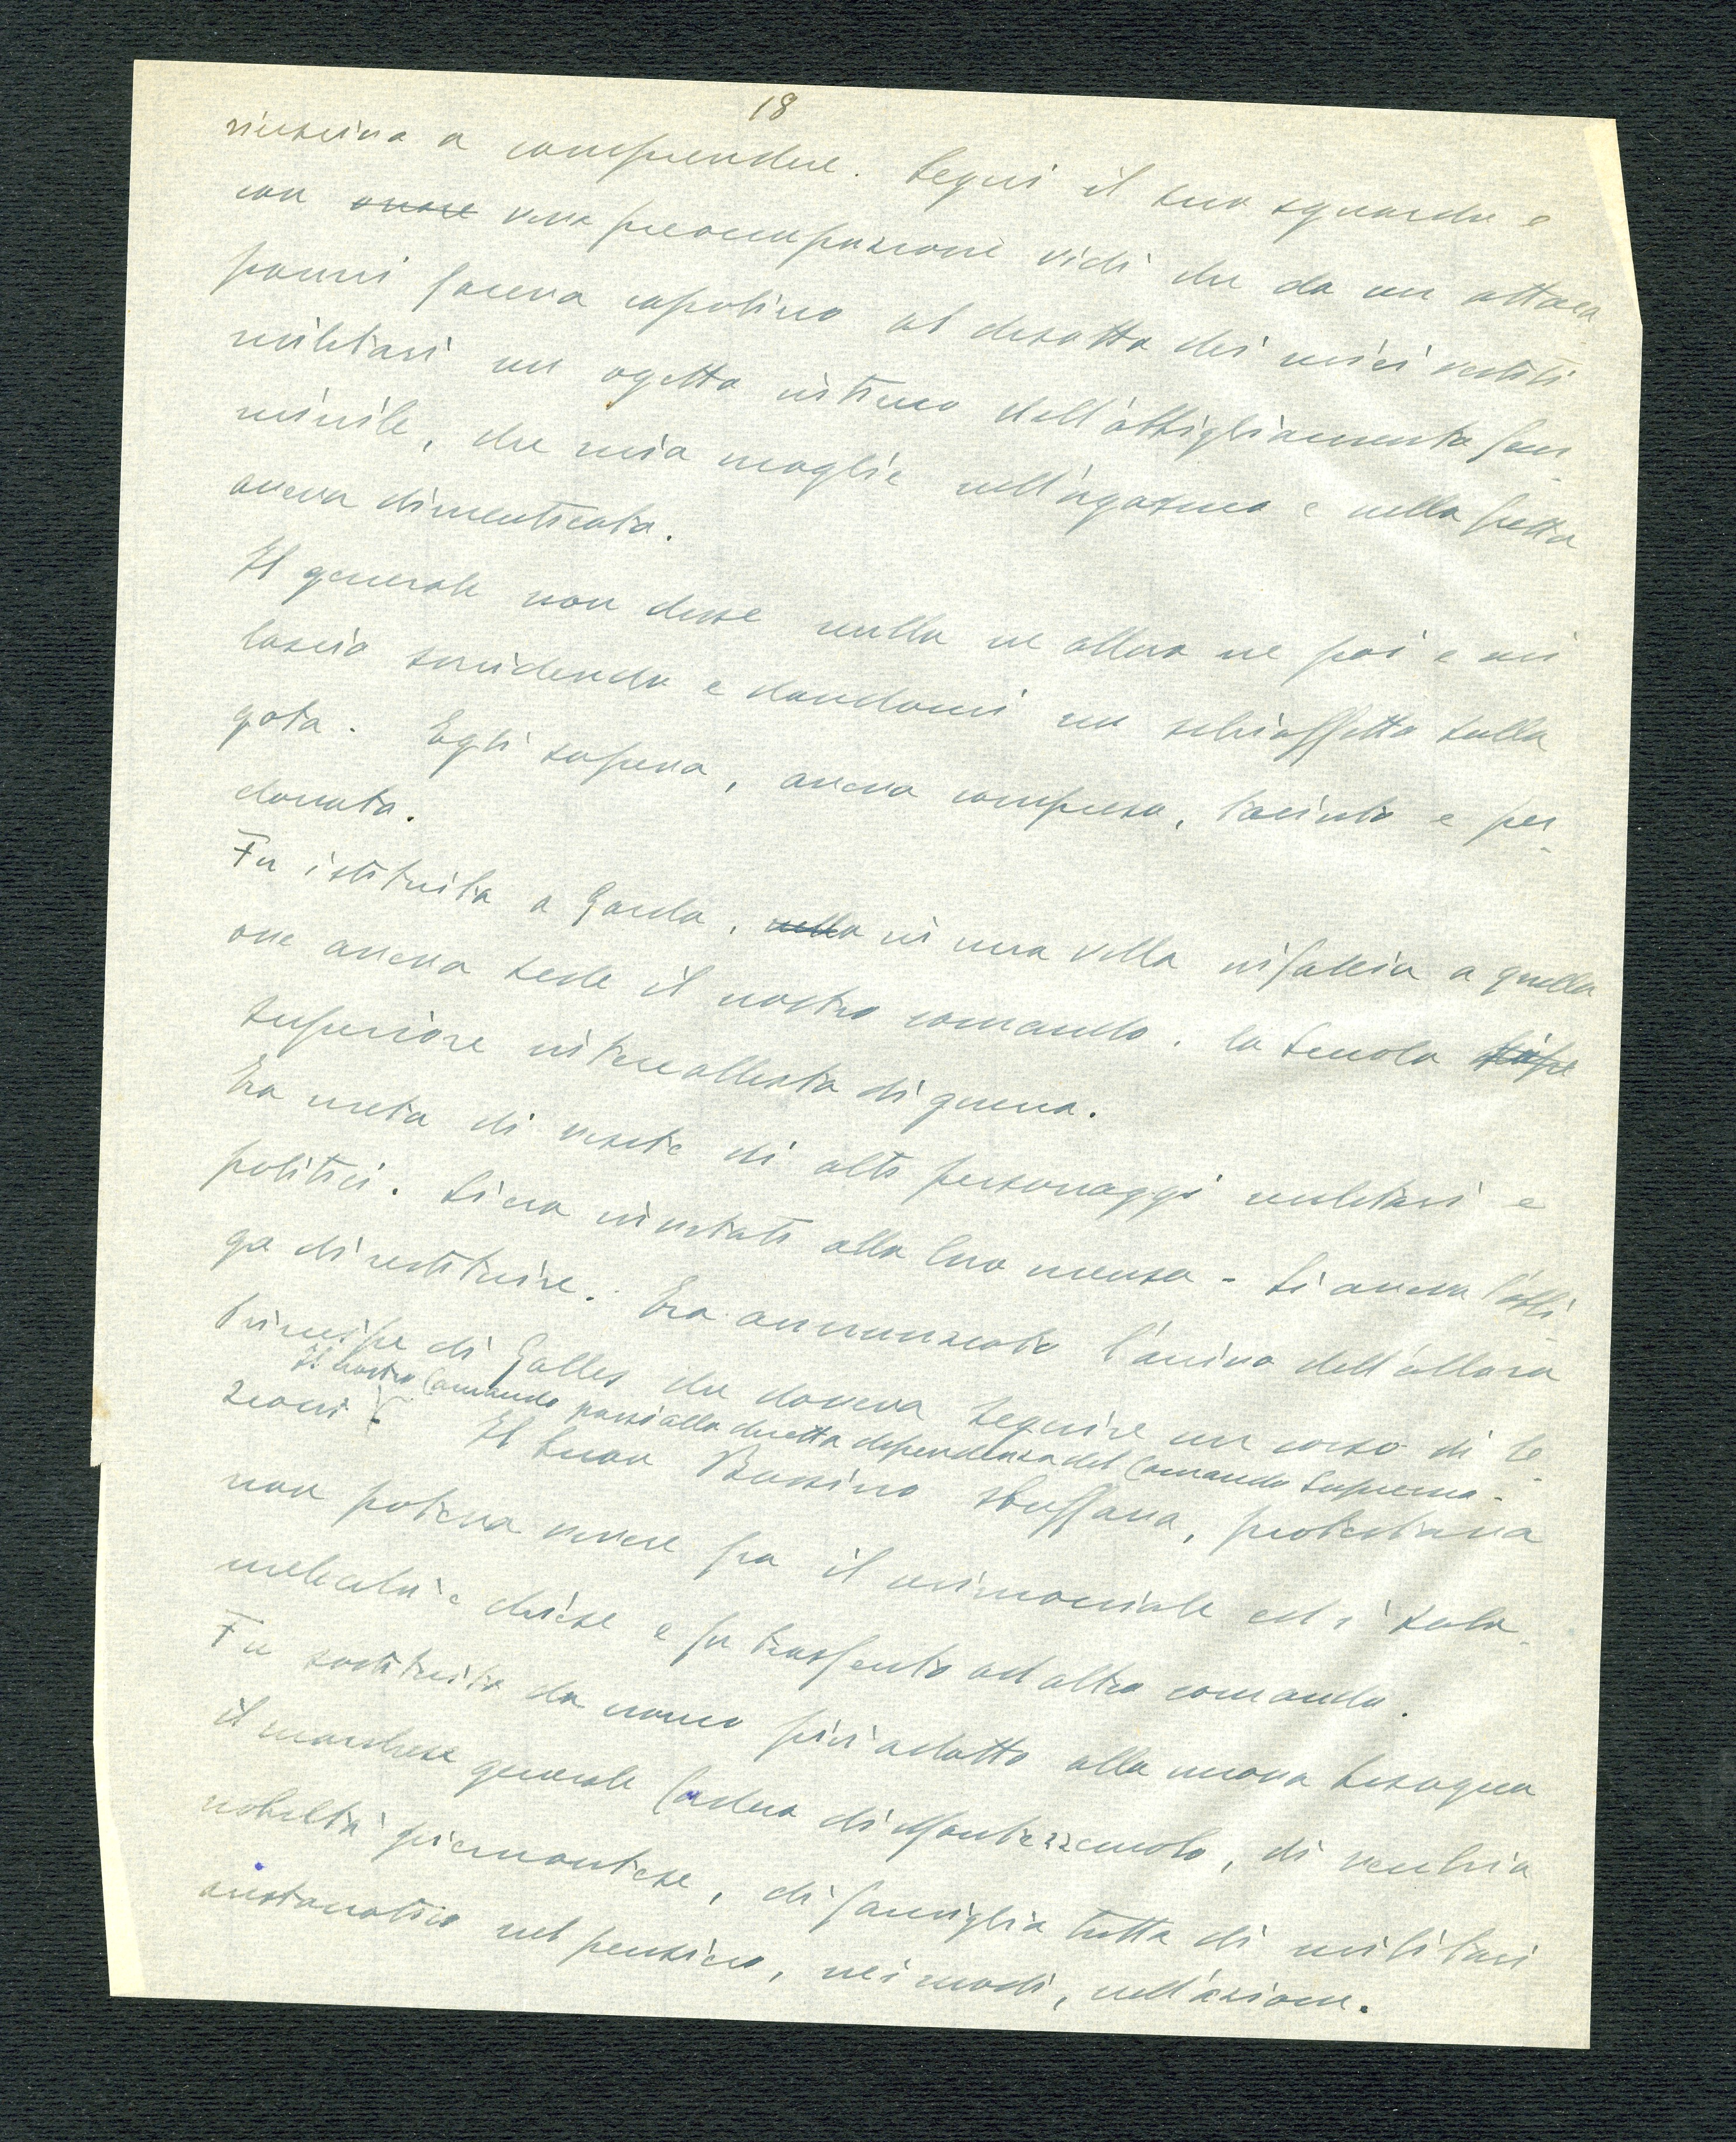 18
riusciva a comprendere. Seguii il suo sguardo e
con orrore viva preoccupazione vidi che da un attacca
panni faceva capolino al disotto dei miei vestiti
militari un ogetto intimo dell'abbigliamento fem-
minile, che mia moglie nell'orgasmo e nella fretta
aveva dimenticato.
Il generale non disse nulla ne allora ne poi e mi
lasciò sorridendo e dandomi un schiaffetto sulla
gota. Egli sapeva, aveva compreso, taciuto e per-
donato.
Fu istituita a Garda, nella in una villa in faccia a quella
ove aveva sede il nostro comando, la Scuola
Superiore interalleata di guerra.
Era meta di visite di alti personaggi militari e
politici. Si era invitati alla loro mensa - Si aveva l'obbli-
go di restituire. Era annunciato l'arrivo dell'allora
Principe di Galles che doveva seguire un corso di le-
Il nostro Comando passò alla diretta dipendenza del Comando Supremo -
zioni. Il buon Bassino sbuffava, protestava
non poteva vivere fra il cerimoniale ed i sala-
melecchi e chiese e fu trasferito ad altro comando.
Fu sostituito da uomo più adatto alla nuova bisogna
il marchese generale Cordero di Montezzemolo, di vecchia
nobiltà piemontese, di famiglia tutta di militari
aristocratico nel pensiero, nei modi, nell'azione.